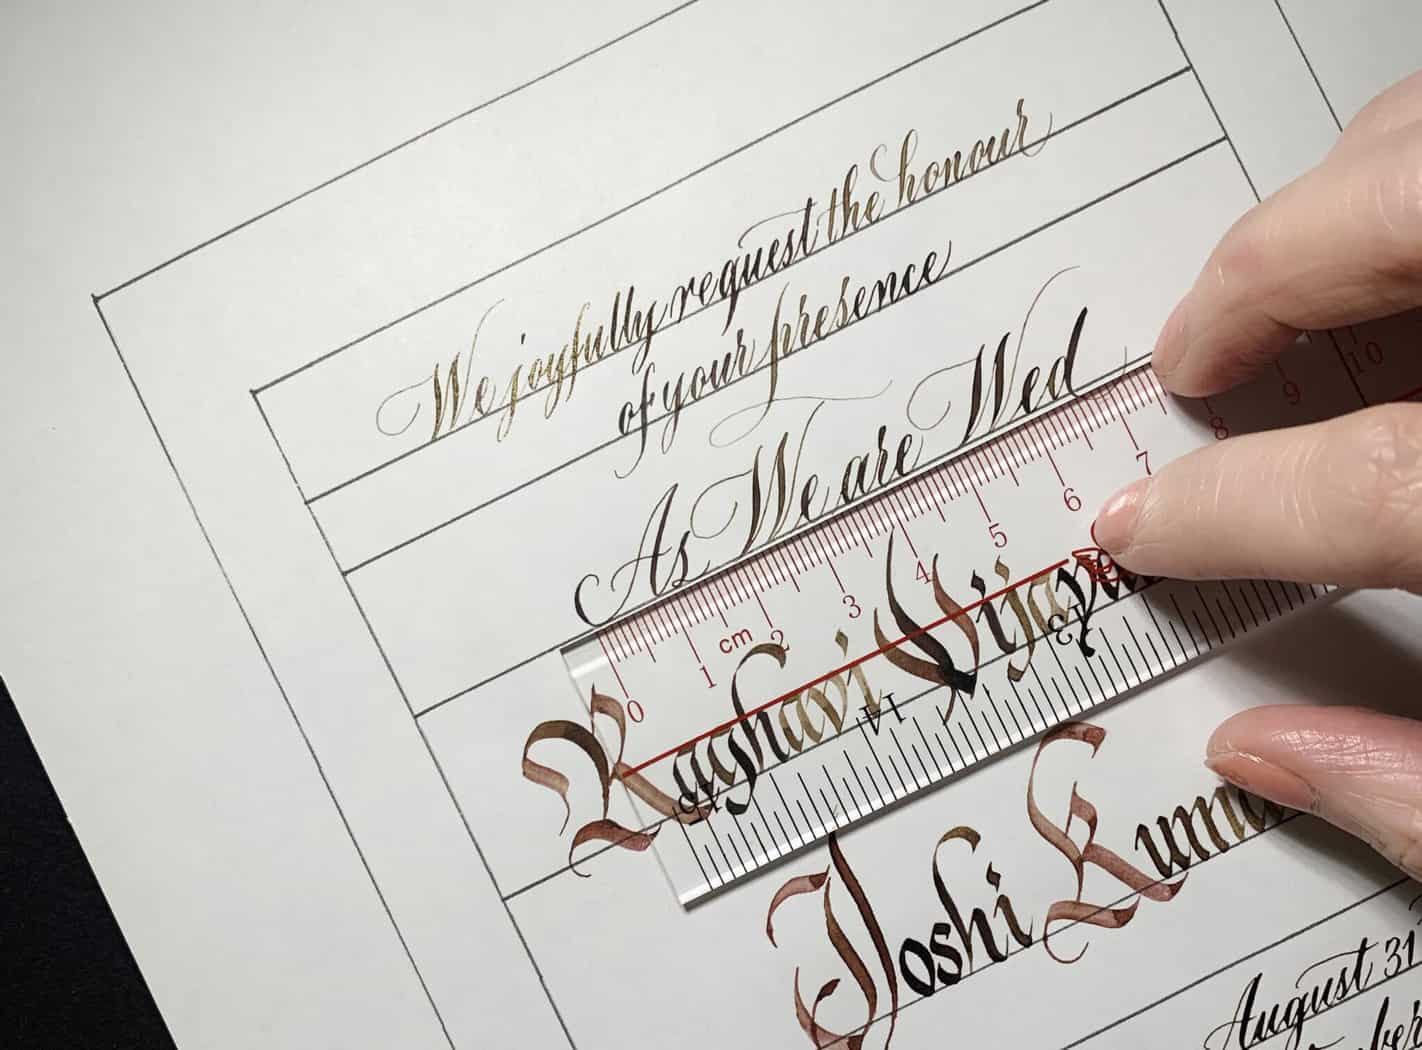 We joyfully request the honour
of your presence
As We are Wed
0 1 cm 2 3 4 5 6 7 8 9 10
Raghavi
15 14 13
Joshi
August 31